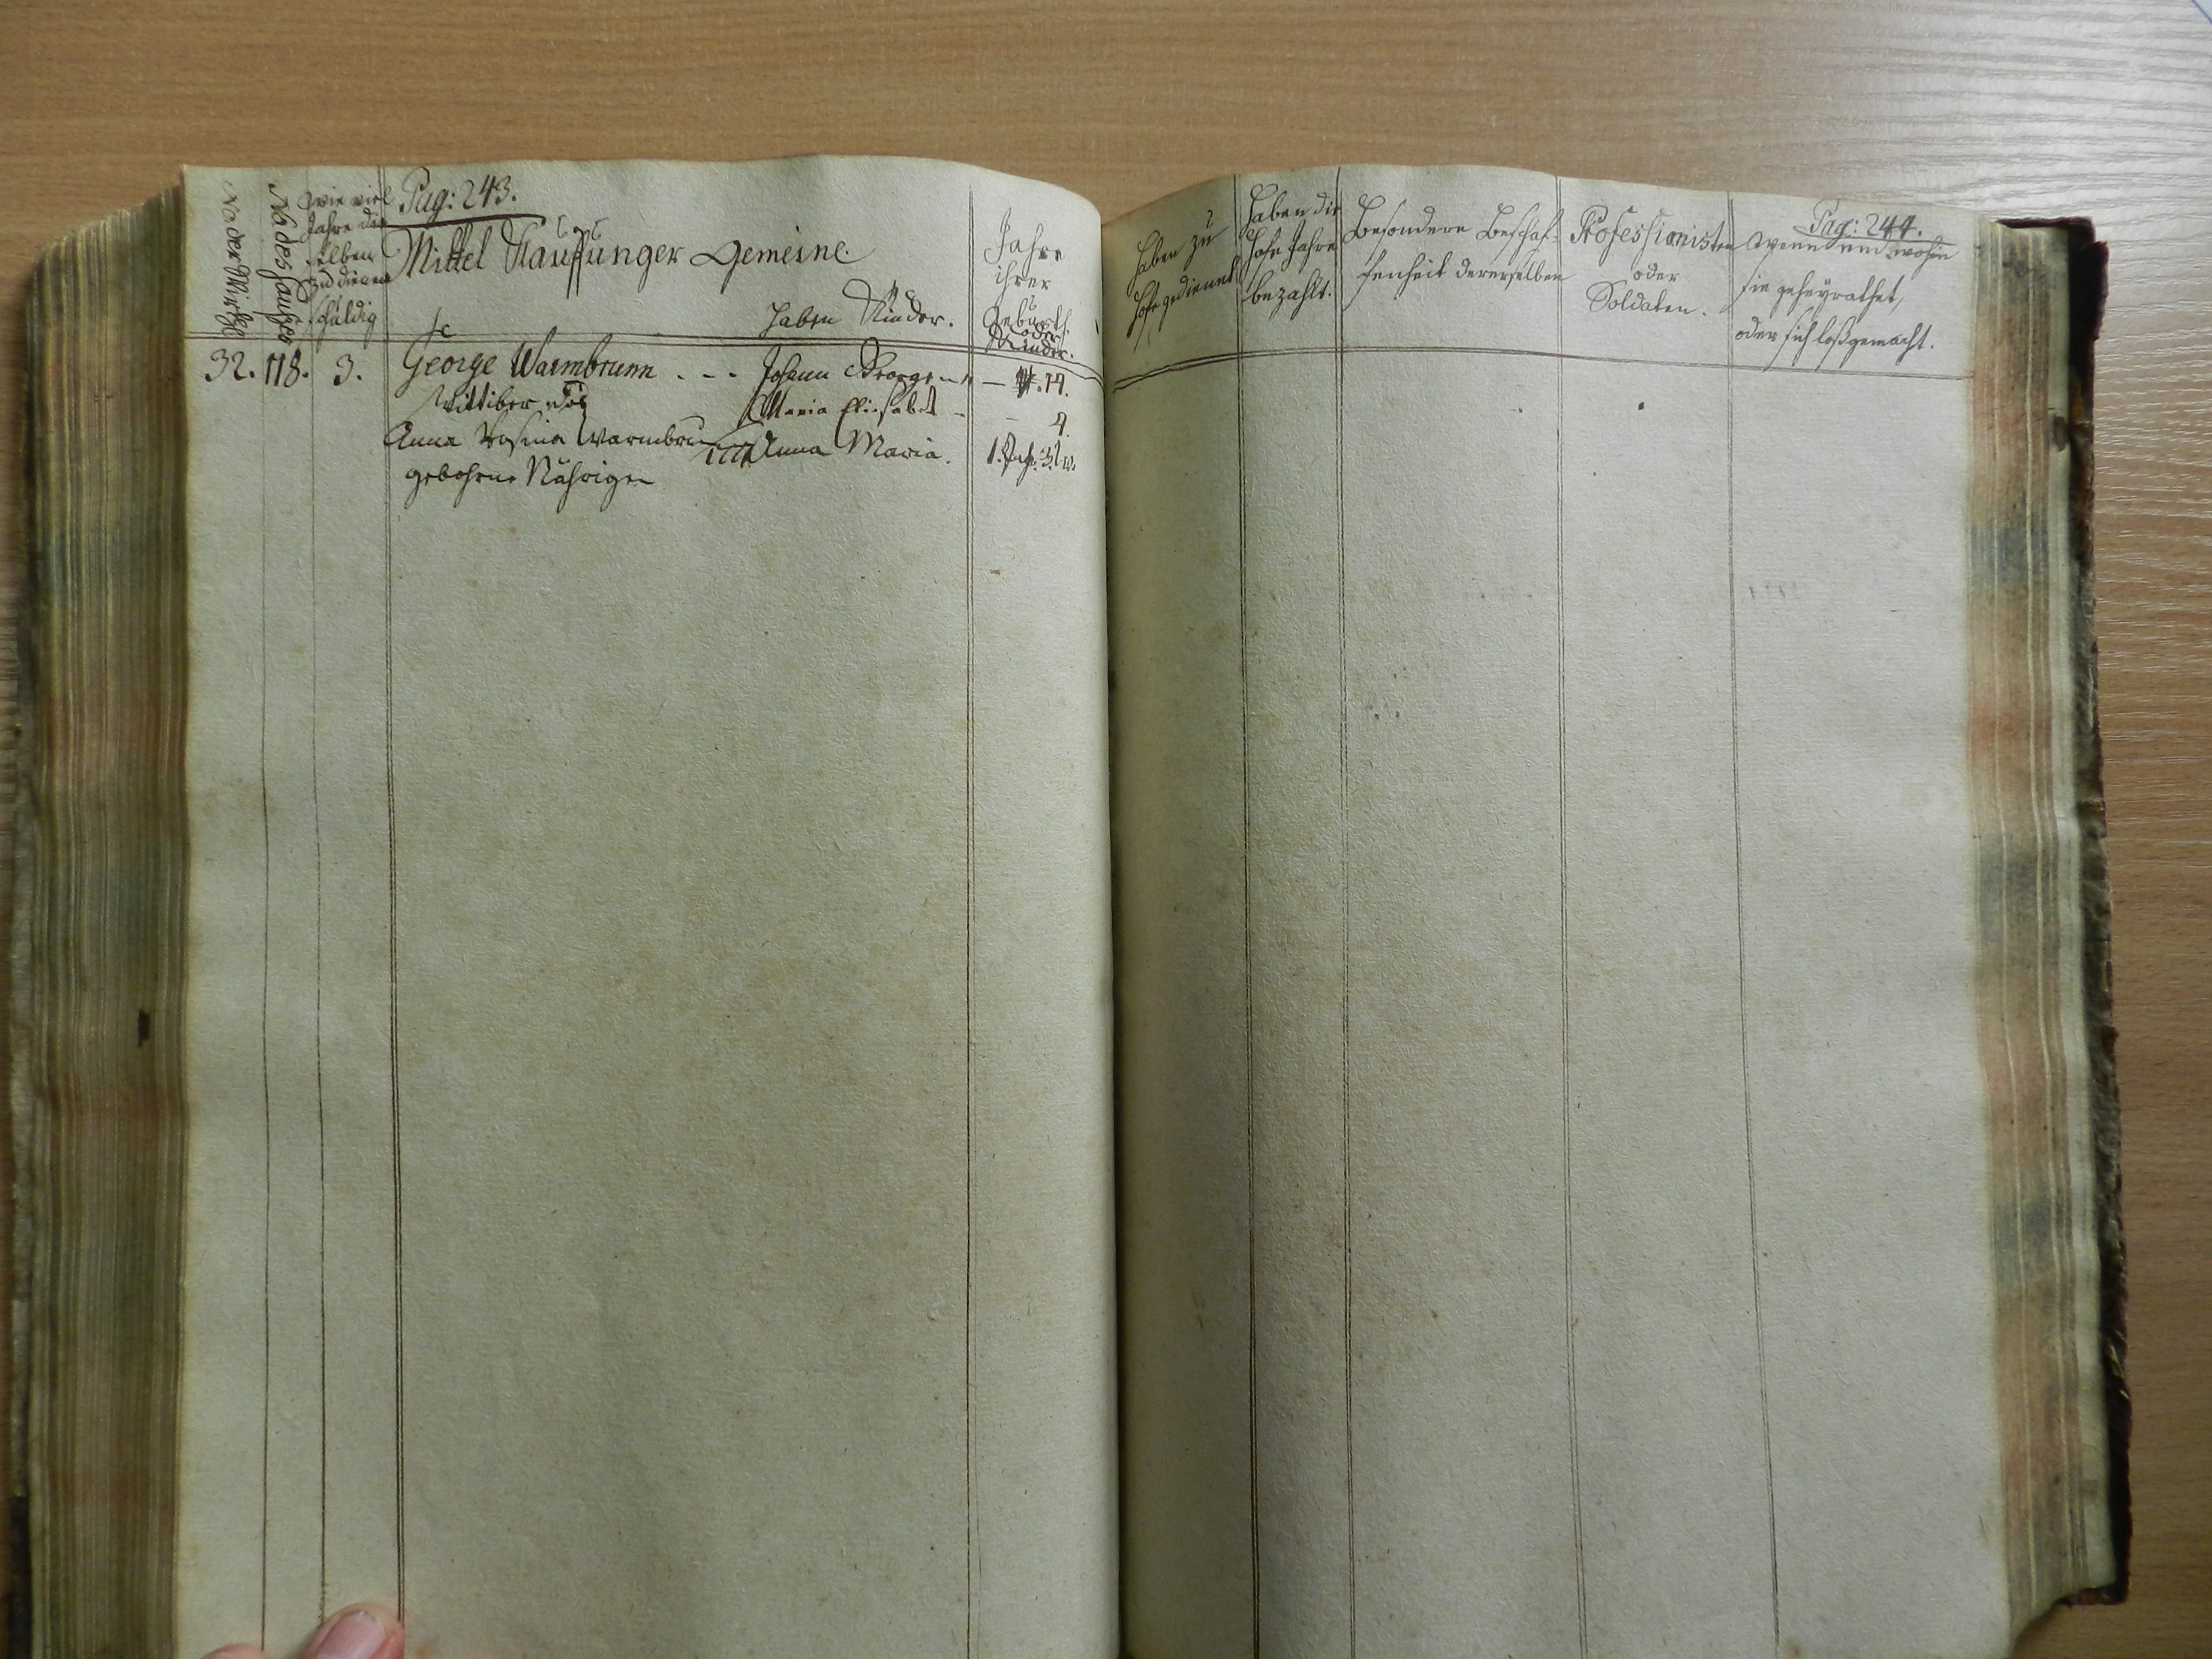 No der Wirthe
No des Haußes
Wie viel
Jahre die
selben
zu dienen
schuldig
Pag: 243.
Mittel Kauffunger Gemeine.
Haben Kinder.
Jahre
ihrer
Geburth.
oder
Kinder.
32. 118. 3. George Warmbrunn . - - Johann George - - 14.
Wittiber Maria Elisabet - 4.
Anna Rosina Warmbrun Anna Maria. 1.
gebohrne Nährigen
Pag: 244.
Haben zu
Hofe gedienet
Haben die
Hofe Jahre
bezahlt.
Besondere Beschaf-
fenheit dererselben
Professionisten
oder
Soldaten.
Wenn und wohin
sie geheyrathet,
oder sich loßgemacht.